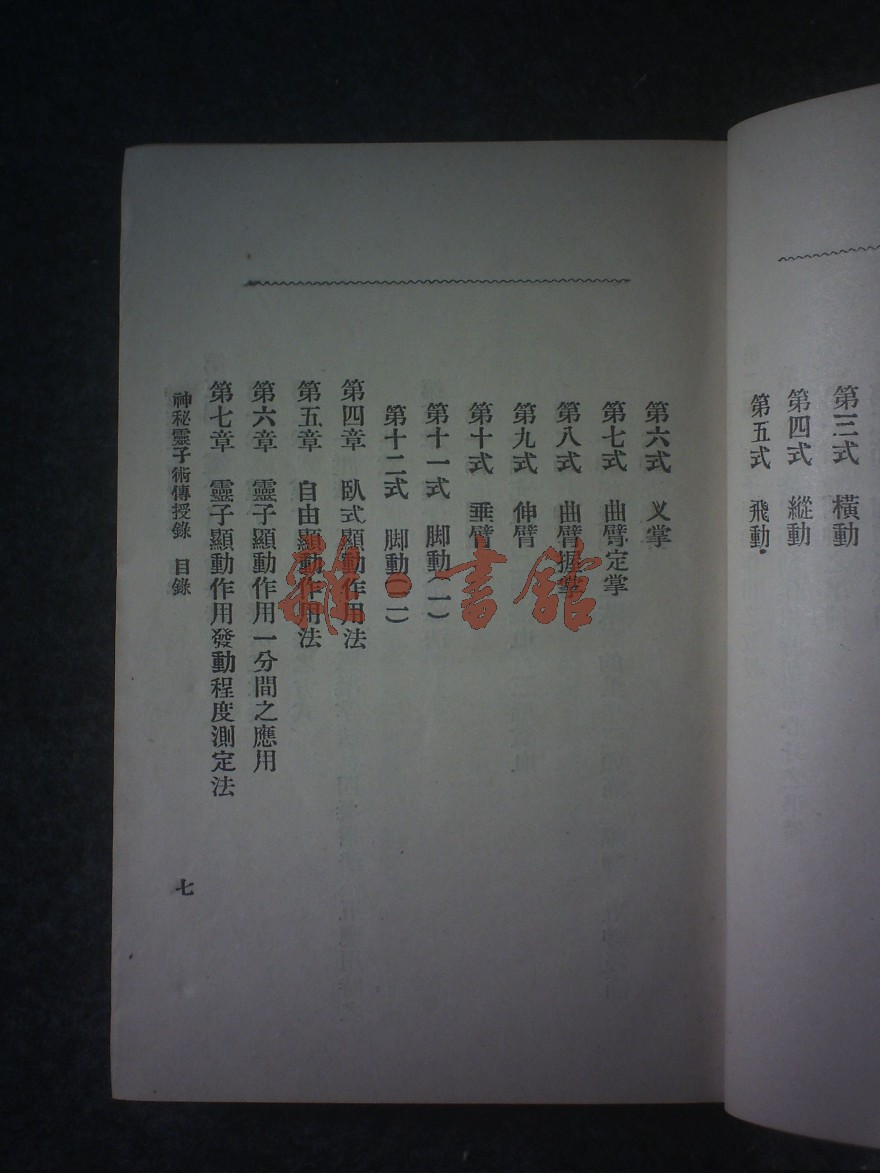 第三式　橫動
第四式　縱動
第五式　飛動
第六式　叉掌
第七式　曲臂定掌
第八式　曲臂握掌
第九式　伸臂
第十式　垂臂
第十一式　脚動（一）
第十二式　脚動（二）
第四章　臥式顯動作用法
第五章　自由顯動作用法
第六章　靈子顯動作用一分間之應用
第七章　靈子顯動作用發動程度測定法
神秘靈子術傳授錄　目錄
七
雜·書館